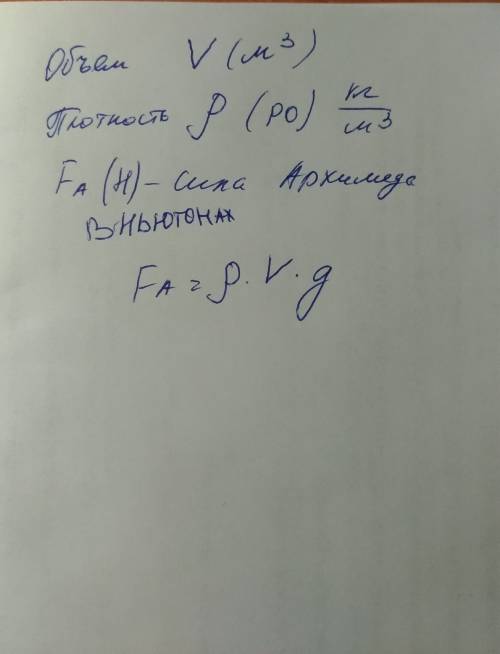 Объем V (м³)
Плотность ρ (РО) кг/м³
FА (Н) – сила Архимеда
в ньютонах
FА = ρ · V · g